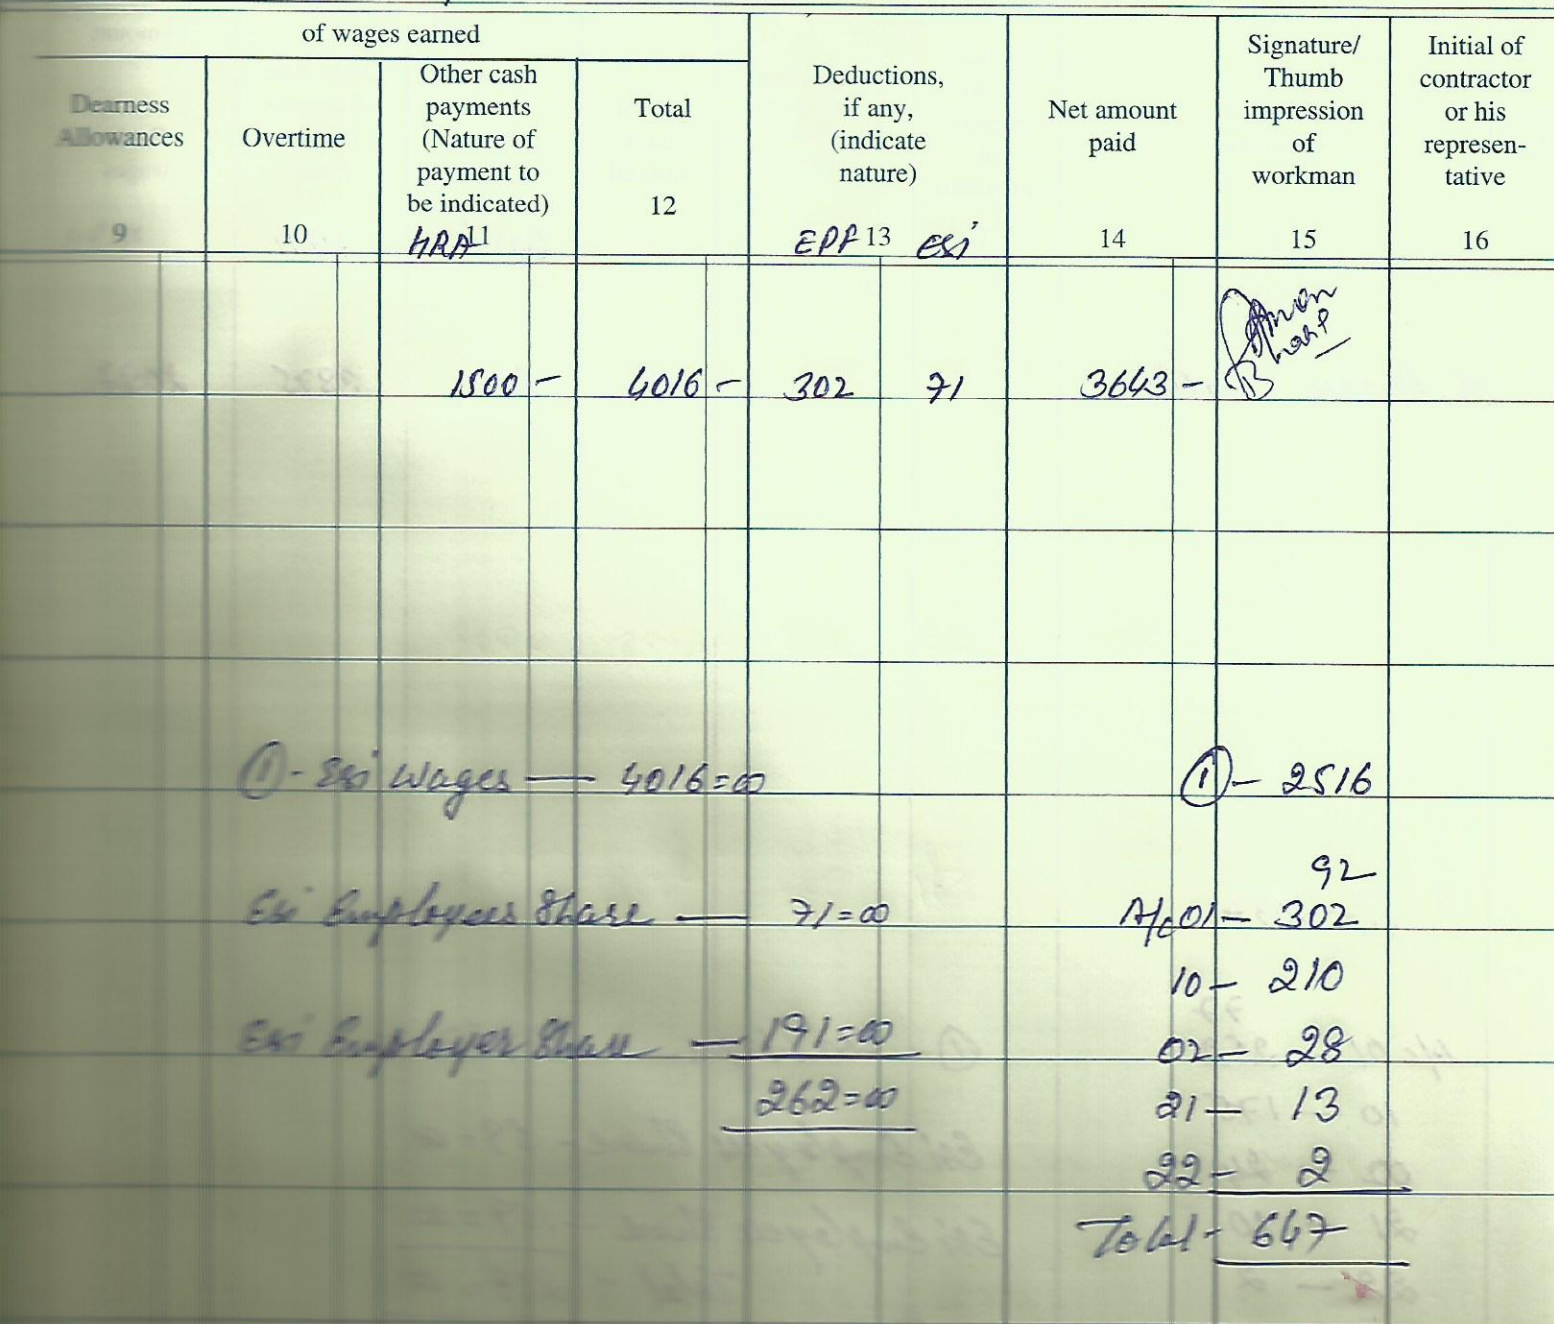 of wages earned
Dearness Allowances
9
Overtime
10
Other cash
payments
(Nature of
payment to
be indicated)
HRA 11
Total
12
Deductions,
if any,
(indicate
nature)
EPF 13 ESi
Net amount
paid
14
Signature/
Thumb
impression
of
workman
15
Initial of
contractor
or his
represen-
tative
16
1500 - 4016 - 302 71 3643 -
① - Esi Wages — 4016=00
Esi Employees Share — 71=00
Esi Employer Share — 191=00
262=00
① - 2516
92
A/c 01 - 302
10 - 210
02 - 28
21 - 13
22 - 2
Total - 647